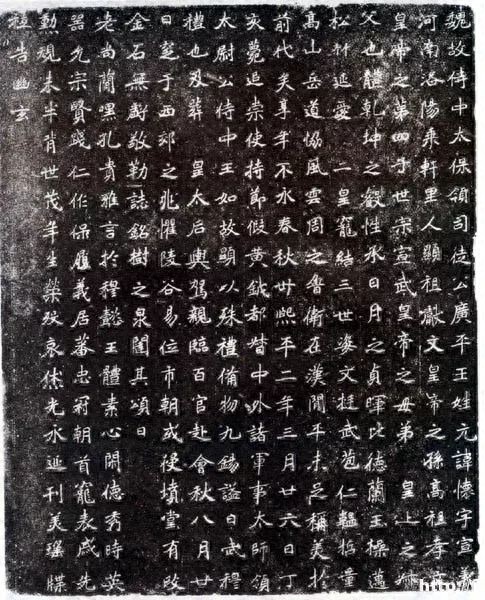 魏故侍中太保領司徒公廣平王姓元諱懷字宣義
河南洛陽乘軒里人顯祖獻文皇帝之孫高祖孝文
皇帝之第四子世宗宣武皇帝之母弟 皇上之叔
父也體乾坤之叡性承日月之貞暉比德蘭玉操邁
松竹延愛 二皇寵結三世姿文挺武苞仁韞哲量
高山岳道協風雲周之魯衛在漢間平未足稱美於
前代矣享年不永春秋卅熙平二年三月廿六日丁
亥薨追崇使持節假黃鉞都督中外諸軍事太師領
太尉公侍中王如故顯以殊禮備物九錫謚曰武穆
禮也及葬 皇太后輿駕親臨百官赴會秋八月廿
日窆于西郊之兆懼陵谷易位市朝或侵墳堂有改
金石無虧敬勒誌銘樹之泉闥其頌曰
老尚簡嘿孔貴雅言於穆懿王體素心閑德秀時英
器允宗賢踐仁作保履義居蕃忠冠朝首寵表戚先
勳規未半背世茂年生榮歿哀休光永延刊美瑤牒
祗告幽玄
http://